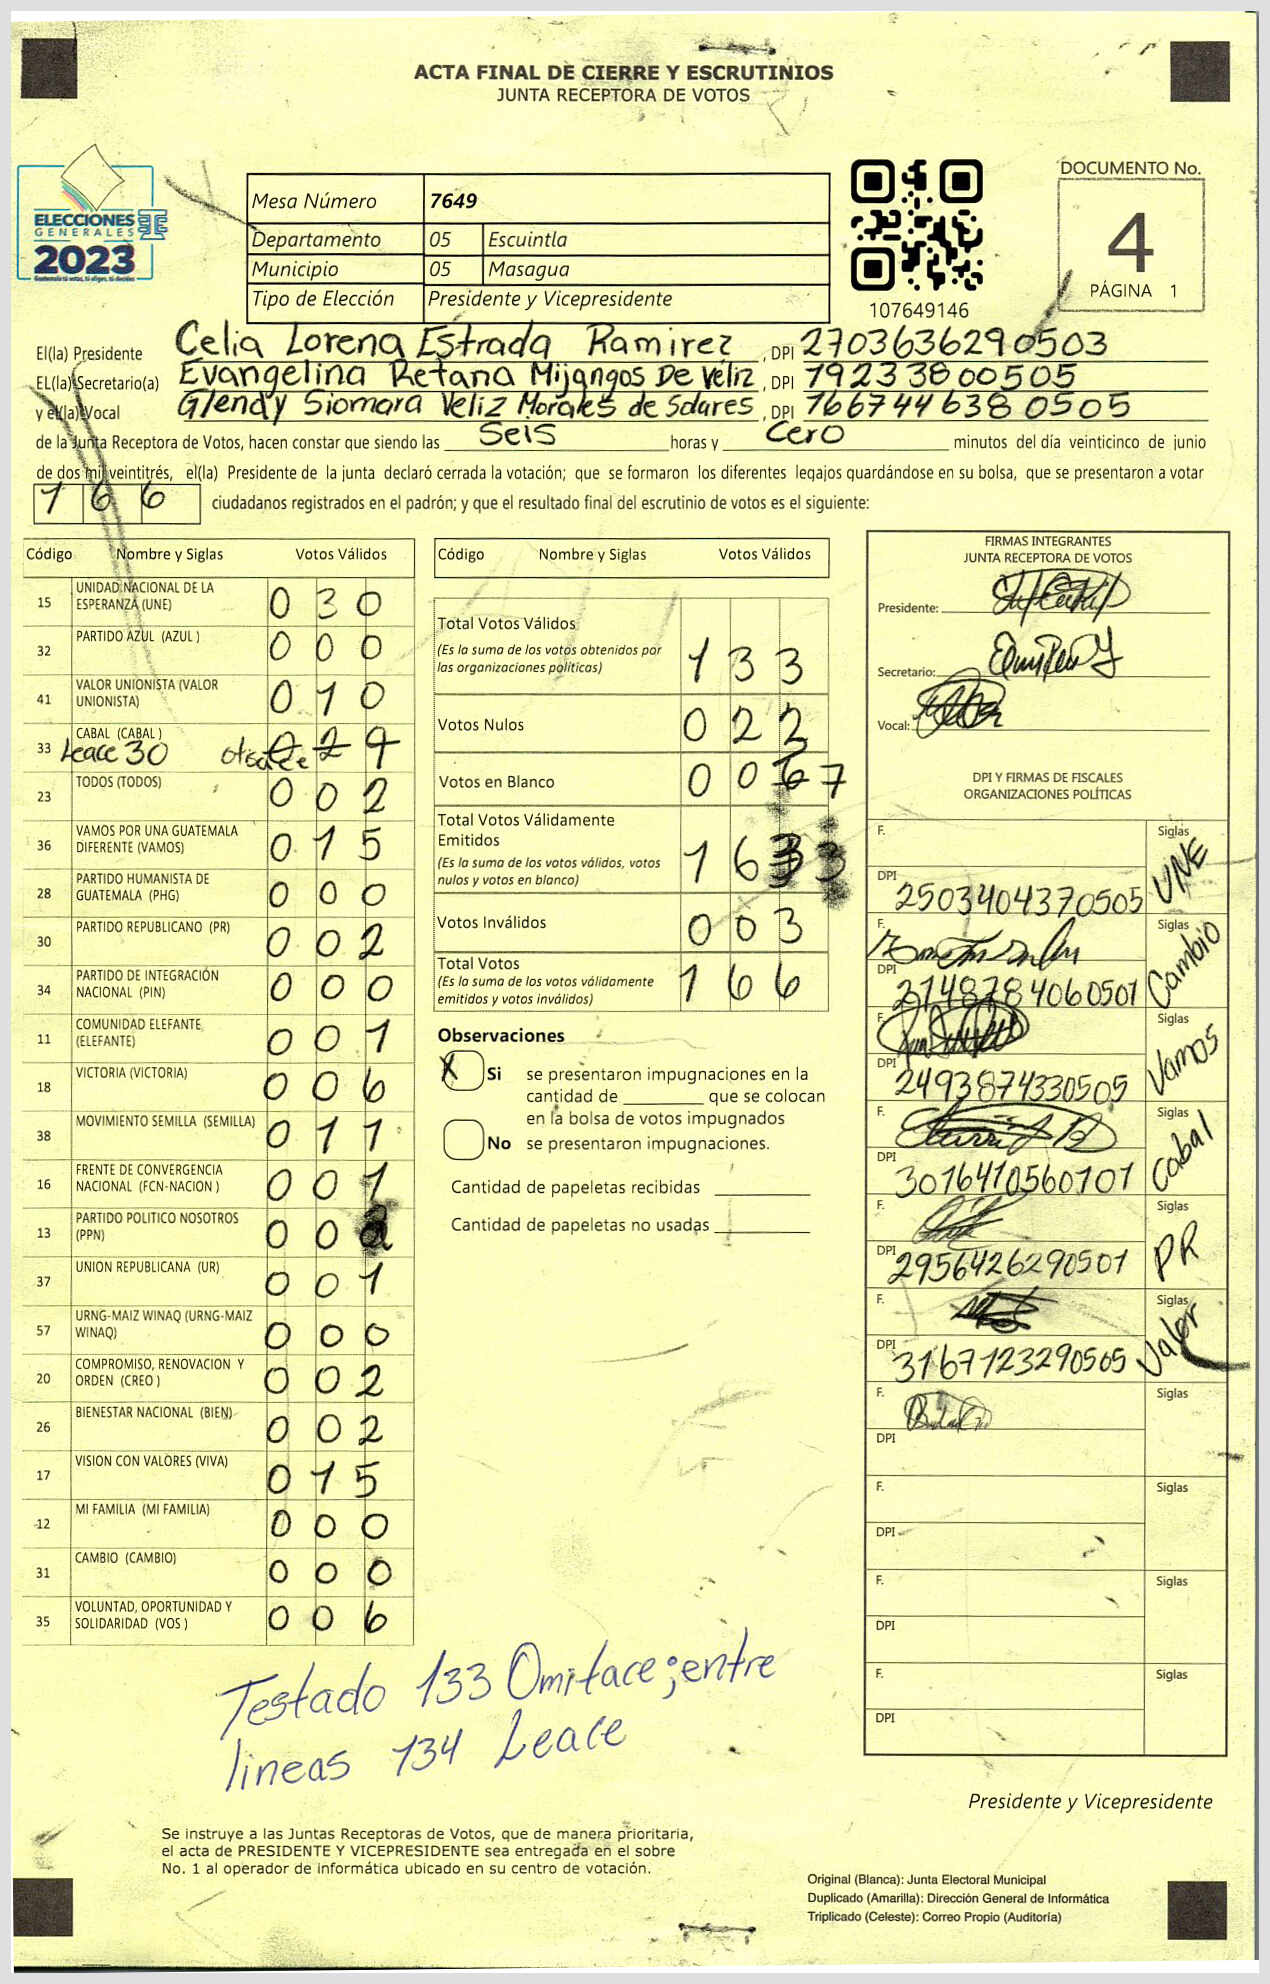 ACTA FINAL DE CIERRE Y ESCRUTINIOS
JUNTA RECEPTORA DE VOTOS
ELECCIONES
GENERALES
2023
Mesa Número 7649
Departamento 05 Escuintla
Municipio 05 Masagua
Tipo de Elección Presidente y Vicepresidente
107649146
DOCUMENTO No.
4
PÁGINA 1
El(la) Presidente Celia Lorena Estrada Ramirez , DPI 2703636290503
EL(la) Secretario(a) Evangelina Retana Mijangos De Véliz , DPI 19233800505
y el(la) Vocal Glendy Siomara Veliz Morales de Solares , DPI 1667446380505
de la Junta Receptora de Votos, hacen constar que siendo las Seis horas y Cero minutos del día veinticinco de junio
de dos mil veintitrés, el(la) Presidente de la junta declaró cerrada la votación; que se formaron los diferentes legajos guardándose en su bolsa, que se presentaron a votar
166 ciudadanos registrados en el padrón; y que el resultado final del escrutinio de votos es el siguiente:
Código Nombre y Siglas Votos Válidos
15 UNIDAD NACIONAL DE LA ESPERANZA (UNE) 0 3 0
32 PARTIDO AZUL (AZUL ) 0 0 0
41 VALOR UNIONISTA (VALOR UNIONISTA) 0 1 0
33 CABAL (CABAL ) 0 2 9
Leace 30
23 TODOS (TODOS) 0 0 2
36 VAMOS POR UNA GUATEMALA DIFERENTE (VAMOS) 0 1 5
28 PARTIDO HUMANISTA DE GUATEMALA (PHG) 0 0 0
30 PARTIDO REPUBLICANO (PR) 0 0 2
34 PARTIDO DE INTEGRACIÓN NACIONAL (PIN) 0 0 0
11 COMUNIDAD ELEFANTE (ELEFANTE) 0 0 1
18 VICTORIA (VICTORIA) 0 0 6
38 MOVIMIENTO SEMILLA (SEMILLA) 0 1 1
16 FRENTE DE CONVERGENCIA NACIONAL (FCN-NACION ) 0 0 1
13 PARTIDO POLITICO NOSOTROS (PPN) 0 0
37 UNION REPUBLICANA (UR) 0 0 1
57 URNG-MAIZ WINAQ (URNG-MAIZ WINAQ) 0 0 0
20 COMPROMISO, RENOVACION Y ORDEN (CREO ) 0 0 2
26 BIENESTAR NACIONAL (BIEN) 0 0 2
17 VISION CON VALORES (VIVA) 0 1 5
12 MI FAMILIA (MI FAMILIA) 0 0 0
31 CAMBIO (CAMBIO) 0 0 0
35 VOLUNTAD, OPORTUNIDAD Y SOLIDARIDAD (VOS ) 0 0 6
Código Nombre y Siglas Votos Válidos
Total Votos Válidos
(Es la suma de los votos obtenidos por las organizaciones políticas) 1 3 3
Votos Nulos 0 2 2
Votos en Blanco 0 0 6 7
Total Votos Válidamente Emitidos
(Es la suma de los votos válidos, votos nulos y votos en blanco) 1 6 3 3
Votos Inválidos 0 0 3
Total Votos
(Es la suma de los votos válidamente emitidos y votos inválidos) 1 6 6
Observaciones
X Si se presentaron impugnaciones en la
cantidad de ________ que se colocan
en la bolsa de votos impugnados
No se presentaron impugnaciones.
Cantidad de papeletas recibidas
Cantidad de papeletas no usadas
FIRMAS INTEGRANTES
JUNTA RECEPTORA DE VOTOS
Presidente:
Secretario:
Vocal:
DPI Y FIRMAS DE FISCALES
ORGANIZACIONES POLÍTICAS
F. Siglas UNE
DPI 2503404370505
F. Siglas Cambio
DPI 2148784060501
F. Siglas Vamos
DPI 2493874330505
F. Siglas Cabal
DPI 3016410560101
F. Siglas PR
DPI 2956426290501
F. Siglas Valor
DPI 3167123290505
F. Siglas
DPI
F. Siglas
DPI
F. Siglas
DPI
F. Siglas
DPI
Testado 133 Omitace; entre
lineas 134 Leace
Presidente y Vicepresidente
Se instruye a las Juntas Receptoras de Votos, que de manera prioritaria,
el acta de PRESIDENTE Y VICEPRESIDENTE sea entregada en el sobre
No. 1 al operador de informática ubicado en su centro de votación.
Original (Blanca): Junta Electoral Municipal
Duplicado (Amarilla): Dirección General de Informática
Triplicado (Celeste): Correo Propio (Auditoría)